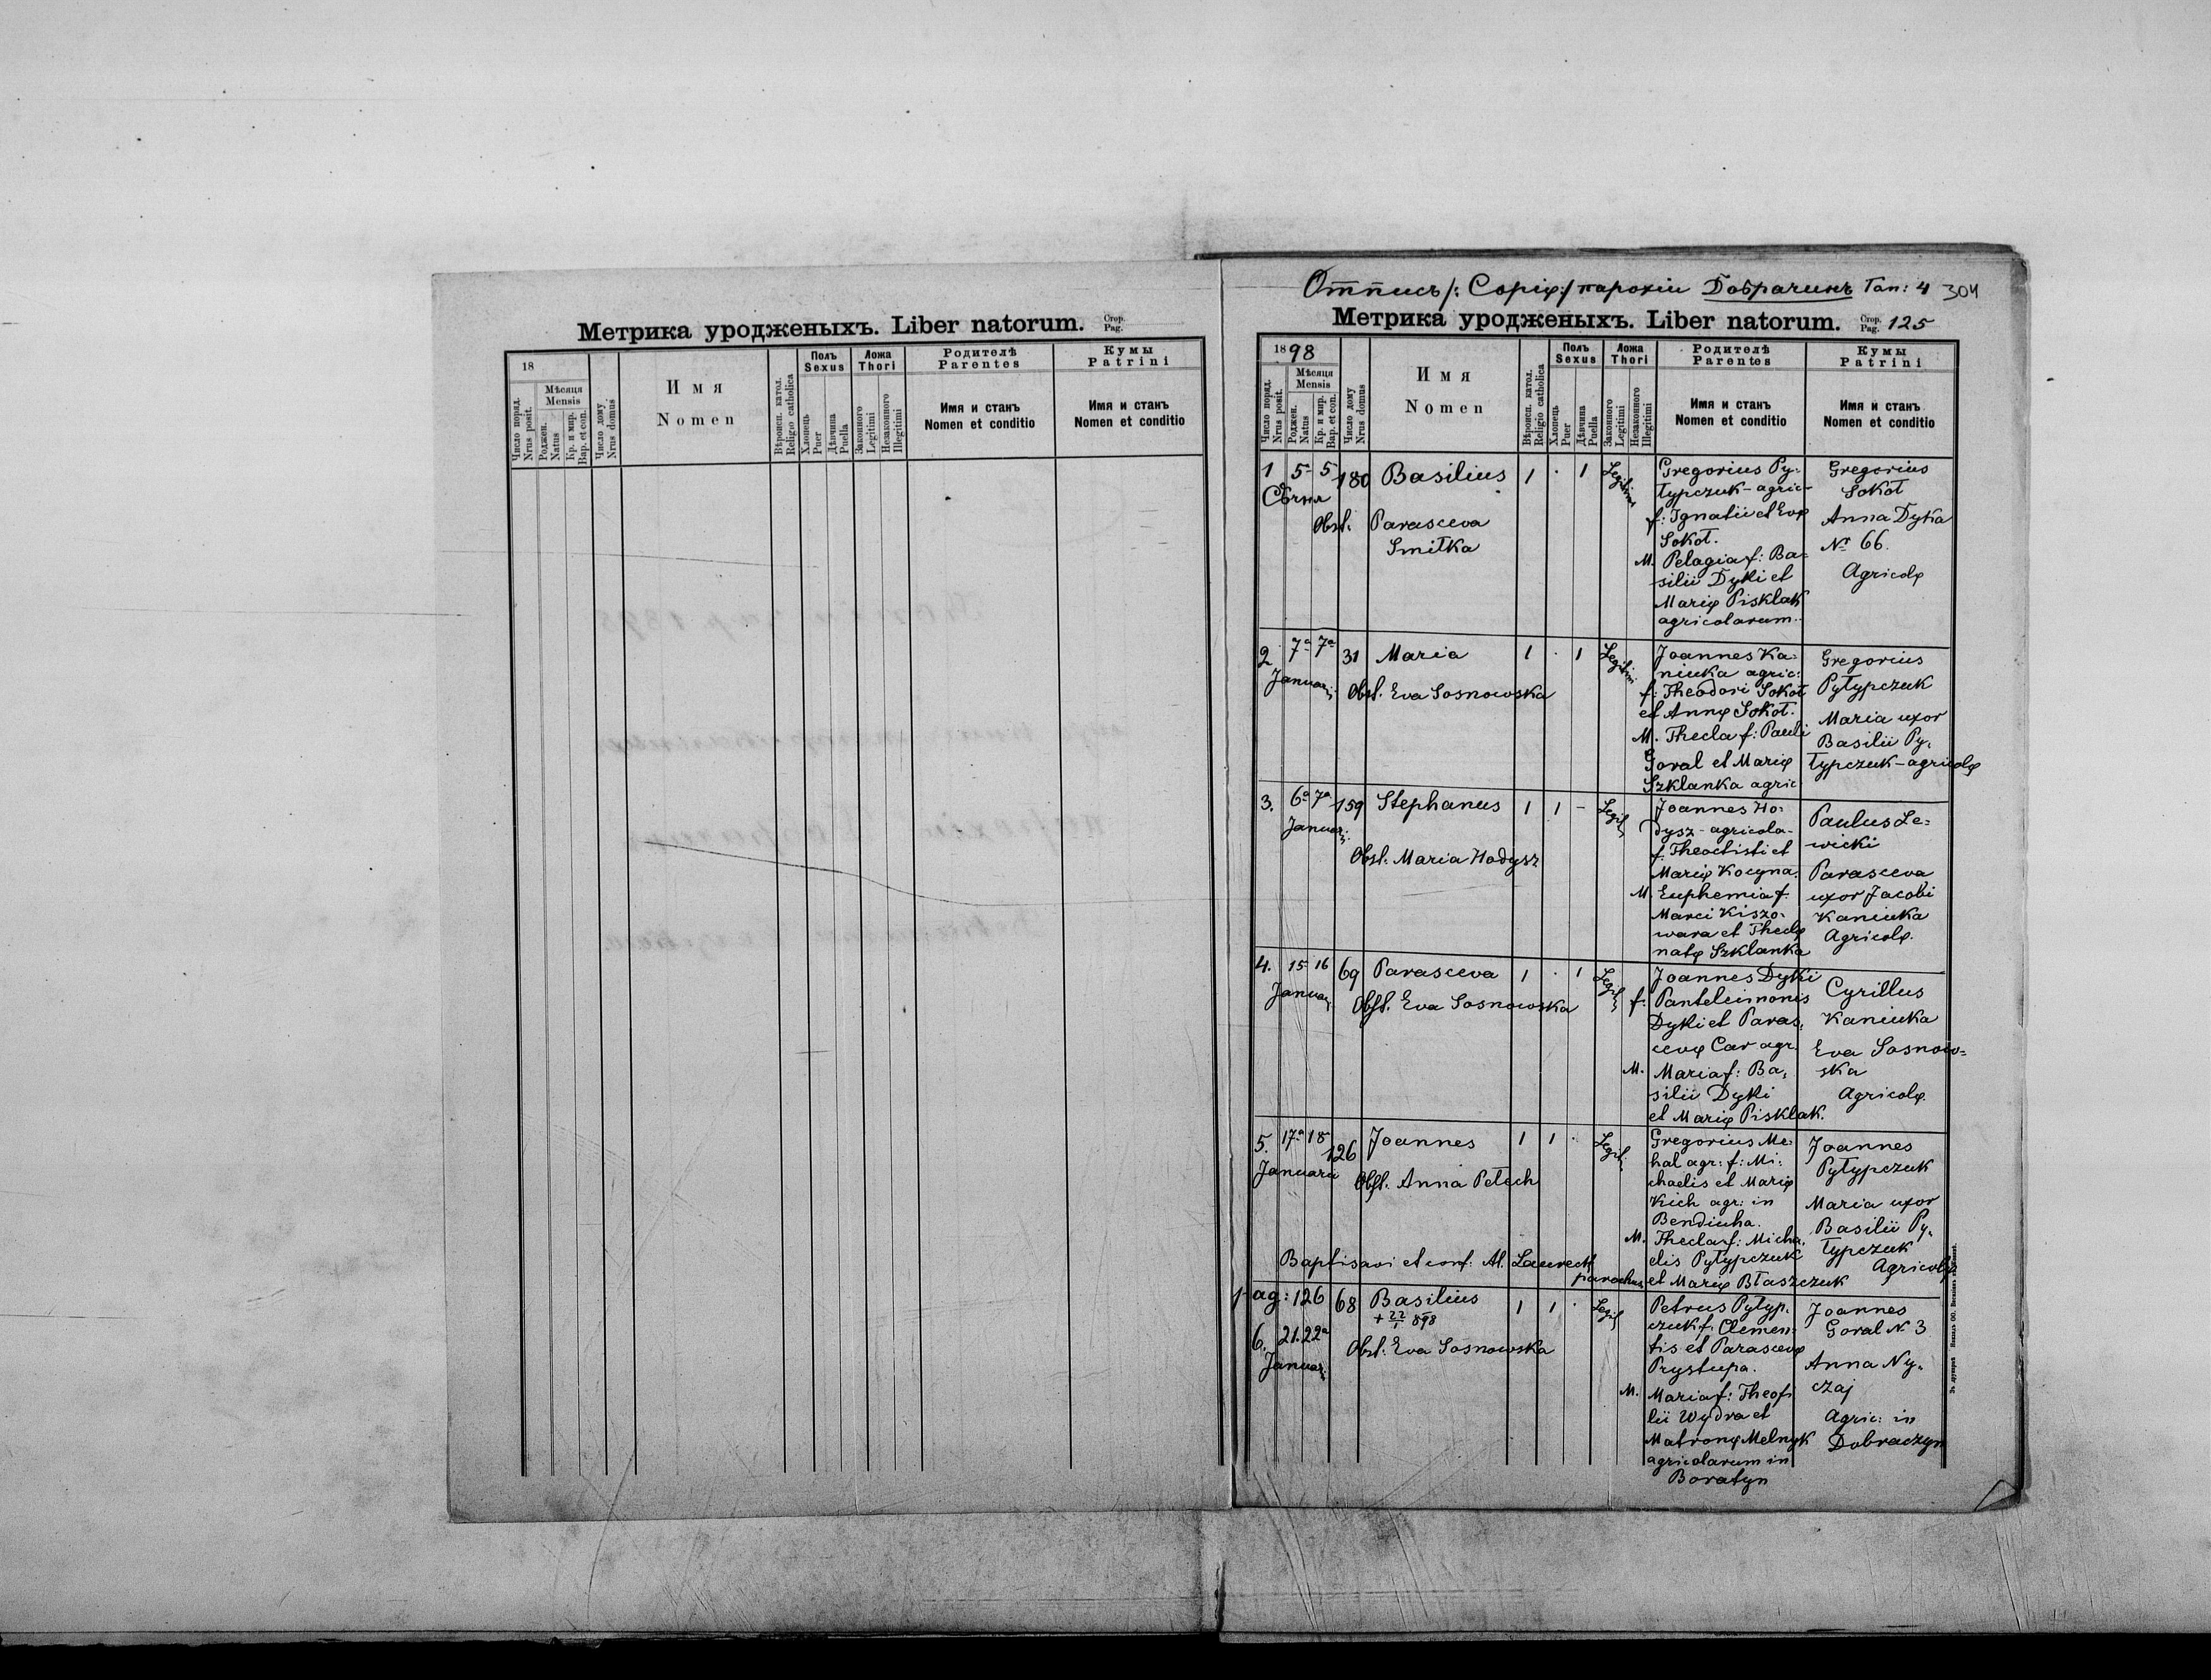 Метрика уродженыхъ. Liber natorum. Стор. Pag.
18
Число поряд. Nrus posit.
Мѣсяця Mensis
Роджен. Natus
Кр. и мир. Bap. et con.
Число дому Nrus domus
Имя
Nomen
Вѣроисп. катол. Religio catholica
Полъ Sexus
Хлопець Puer
Дѣвчина Puella
Ложа Thori
Законного Legitimi
Незаконного Illegitimi
Родителѣ
Parentes
Имя и станъ
Nomen et conditio
Кумы
Patrini
Имя и станъ
Nomen et conditio
Отпись /: Copia :/ парохіи Добрачинъ 304
Метрика уродженыхъ. Liber natorum. Стор. Pag. 125
1898
Число поряд. Nrus posit.
Мѣсяця Mensis
Роджен. Natus
Кр. и мир. Bap. et con.
Число дому Nrus domus
Имя
Nomen
Вѣроисп. катол. Religio catholica
Полъ Sexus
Хлопець Puer
Дѣвчина Puella
Ложа Thori
Законного Legitimi
Незаконного Illegitimi
Родителѣ
Parentes
Имя и станъ
Nomen et conditio
Кумы
Patrini
Имя и станъ
Nomen et conditio
1 5 5 180 Basilius 1 · 1 Legitimi
Сѣчня
Obst. Parasceva
Smitka
Gregorius Py-
typczuk - agric-
f: Ignatii et Evę
Sokoł.
M. Pelagia f: Ba-
silii Dyki et
Marię Pisklak
agricolarum.
Gregorius
Sokoł
Anna Dyka
Nr 66.
Agricolę
2 7a 7a 31 Maria 1 · 1 Legitimi
Januarii
Obst. Eva Sosnowska
Joannes Ka-
niuka agric:
f: Theodori Sokoł
et Annę Sokoł.
M. Thecla f: Pauli
Goral et Marię
Szklanka agric
Gregorius
Pyłypczuk
Maria uxor
Basilii Py-
łypczuk - agricolę
3. 6a 7a 159 Stephanus 1 1 - Legit
Januarii
Obst. Maria Hodysz
Joannes Ho-
dysz - agricola-
f. Theoctisti et
Marię Kocyna.
M. Euphemia f.
Marci Kiszo-
wara et Theclę
natę Szklanka
Paulus Le-
wicki
Parasceva
uxor Jacobi
Kaniuka
Agricolę.
4. 15 16 69 Parasceva 1 · 1 Legit
Januarii
Obst. Eva Sosnowska
Joannes Dyki
f. Panteleimonis
Dyki et Paras-
cevę Car agr.
M. Maria f: Ba-
silii Dyki
et Marię Pisklak.
Cyrillus
Kaniuka
Eva Sosnow-
ska
Agricolę.
5. 17a 18 126 Joannes 1 1 · Legit
Januarii
Obst. Anna Petech
Baptisavi et conf: Al. parochus
Gregorius Me-
hal agr: f: Mi-
chaelis et Marię
Kich agr: in
Bendiuha.
M. Thecla f: Micha-
elis Pyłypczuk
et Marię Błaszczuk
Joannes
Pyłypczuk
Maria uxor
Basilii Py-
łypczuk
Agricolę
pag: 126
68 Basilius 1 1 · Legit
+ 22/1 898
6. 21. 22a
Januarii
Obst. Eva Sosnowska
Petrus Pyłyp-
czuk f. Clemen-
tis et Parascevę
Prystupa.
M. Maria f: Theofi
lii Wydra et
Matronę Melnyk
agricolarum in
Boratyn
Joannes
Goral N 3
Anna Ny-
czaj
Agric: in
Dobraczyn